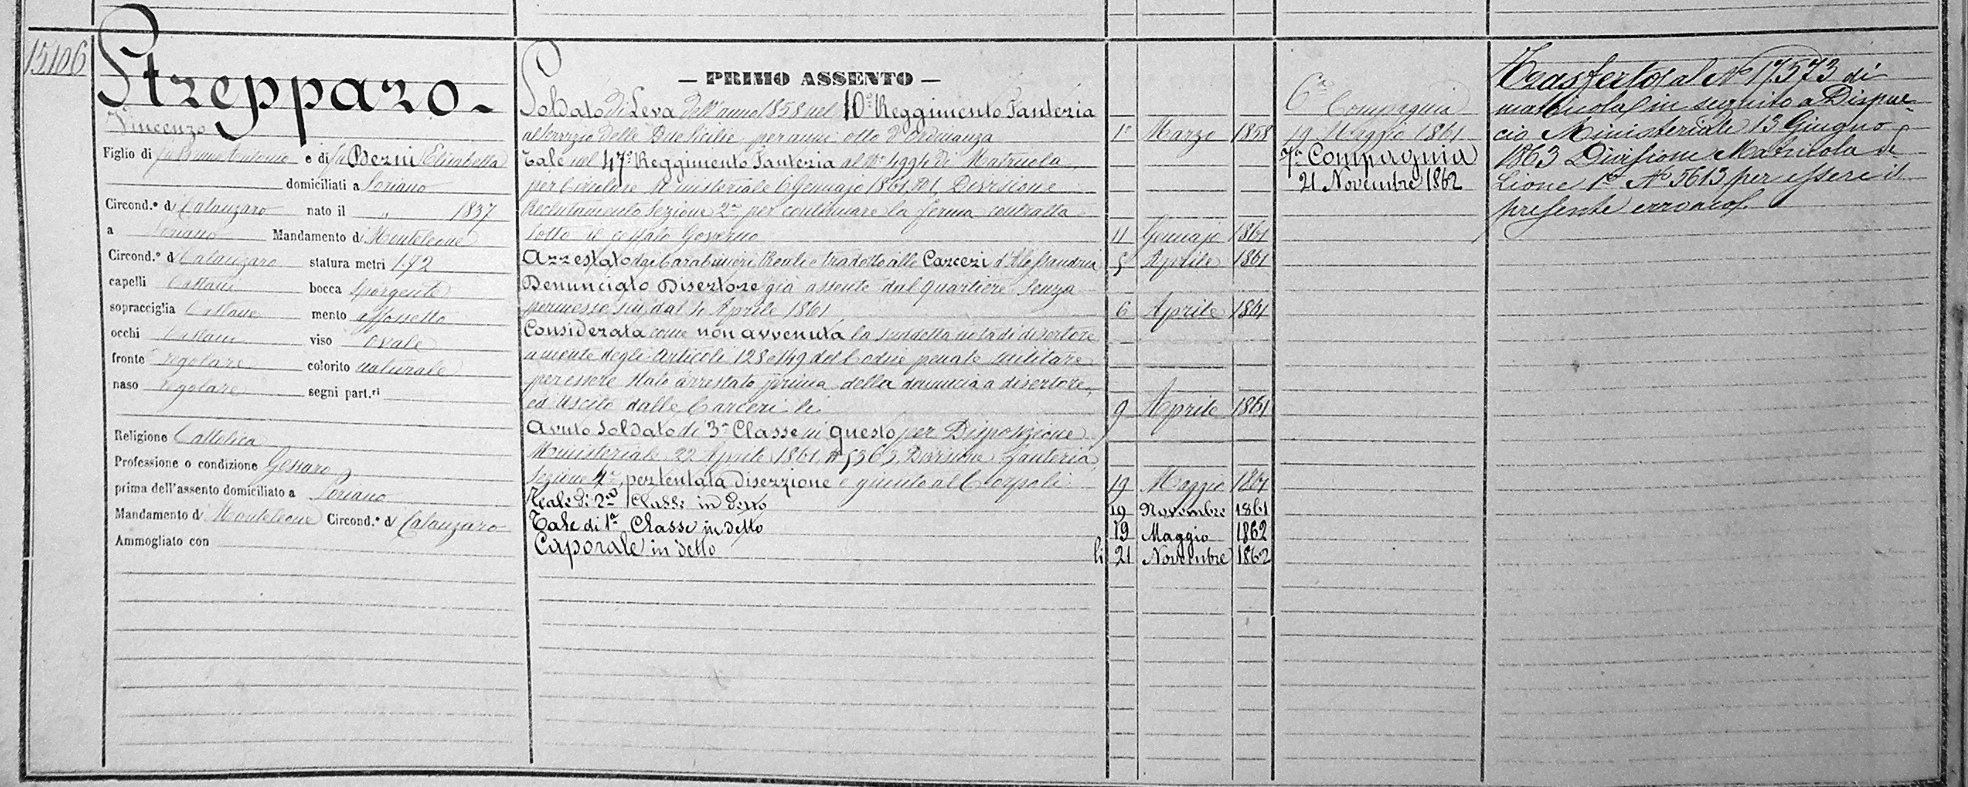 15106
Strepparo
Vincenzo
Figlio di fu Bruno Antonio e di fu Berni Elisabetta
domiciliati a Soriano
Circond.º di Catanzaro nato il „ 1837
a Soriano Mandamento di Monteleone
Circond.º di Catanzaro statura metri 1.72
capelli Castani bocca Sporgente
sopracciglia Castane mento affossetto
occhi Castani viso Ovale
fronte regolare colorito naturale
naso regolare segni part.ri
Religione Cattolica
Professione o condizione Gessaro
prima dell'assento domiciliato a Soriano
Mandamento di Monteleone Circond.º di Catanzaro
Ammogliato con
— PRIMO ASSENTO —
Soldato di Leva dell'anno 1858 nel 10º Reggimento Fanteria
al servizio delle Due Sicilie per anni otto d'Ordinanza 1º Marzo 1858
Tale nel 47º Reggimento Fanteria al Nº 4994 di Matricola
per Circolare Ministeriale 6 Gennajo 1861 Nº 1, Divisione
Reclutamento Sezione 2ª per continuare la ferma contratta
sotto il cessato Governo 11 Gennajo 1861
Arrestato dai Carabinieri Reali e tradotto alle Carceri d'Alessandria 5 Aprile 1861
Denunciato Disertore già assente dal quartiere senza
permesso sin dal 4 Aprile 1861 6 Aprile 1861
Considerata come non avvenuta la suddetta nota di disertore
a mente degli Articoli 128 e 149 del Codice penale militare
per essere stato arrestato prima della denuncia a disertore,
ed uscito dalle Carceri li 9 Aprile 1861
Avuto Soldato di 3ª Classe in questo per Disposizione
Ministeriale 22 Aprile 1861 Nº 5363, Divisione Fanteria,
Sezione 4ª, per tentata diserzione e giunto al Corpo li 19 Maggio 1861
Tale di 2ª Classe in detto 19 Novembre 1861
Tale di 1ª Classe in detto 19 Maggio 1862
Caporale in detto li 21 Novembre 1862
6ª Compagnia
19 Maggio 1861
7ª Compagnia
21 Novembre 1862
Trasferto al Nº 17573 di
matricola in seguito a Dispac-
cio Ministeriale 13 Giugno
1863 Divisione Matricola Se-
zione 1ª Nº 5613 per essere il
presente erroneo.